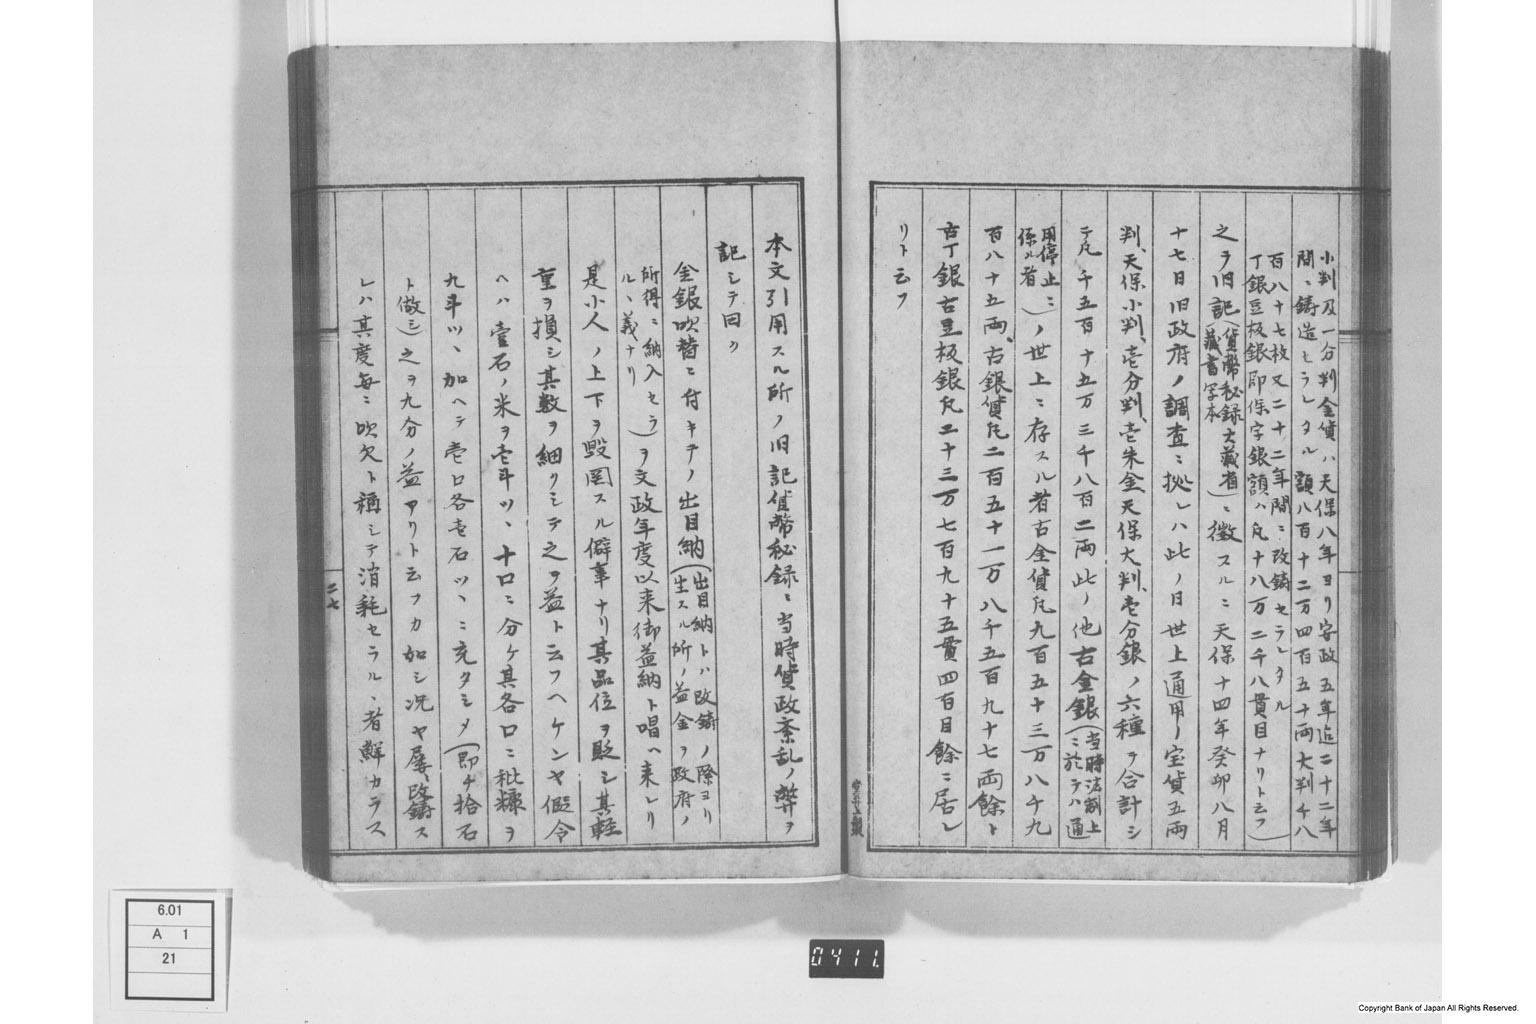 小判及一分判金貨ハ天保八年ヨリ安政五年迄二十二年
間ニ鋳造セラレタル額八百十二万四百五十両大判千八
百八十七枚又二十二年間ニ改鋳セラレタル
丁銀豆板銀即保字銀額ハ凡十八万二千八貫目ナリト云フ)
之ヲ旧記(貨幣秘録大蔵省
蔵書写本)ニ徴スルニ天保十四年癸卯八月
十七日旧政府ノ調査ニ拠レハ此ノ日世上通用ノ宝貨五両
判、天保小判、壱分判、壱朱金天保大判、壱分銀ノ六種ヲ合計シ
テ凡千五百十五万三千八百二両此ノ他古金銀(当時法制上
ニ於テハ通
用停止ニ
係ル者)ノ世上ニ存スル者古金貨凡九百五十三万八千九
百八十五両、古銀貨凡二百五十一万八千五百九十七両餘ト
古丁銀古豆板銀凡二十三万七百九十五貫四百目餘ニ居レ
リト云フ
本文引用スル所ノ旧記貨幣秘録ニ当時貨政紊乱ノ弊ヲ
記シテ曰ク
金銀吹替ニ付キテノ出目納(出目納トハ改鋳ノ際ヨリ
生スル所ノ益金ヲ政府ノ
所得ニ納入セラ
ルヽ義ナリ)ヲ文政年度以来御益納ト唱ヘ来レリ
是小人ノ上下ヲ毀罔スル僻事ナリ其品位ヲ貶シ其軽
重ヲ損シ其数ヲ細クシテ之ヲ益ト云フヘケンヤ仮令
ヘハ壹石ノ米ヲ壱斗ツヽ十口ニ分ケ其各口ニ粃糠ヲ
九斗ツヽ加ヘテ壱口各壱石ツヽニ充タシメ(即チ拾石
ト做シ)之ヲ九分ノ益アリト云フカ如シ況ヤ屡〻改鋳ス
レハ其度毎ニ吹欠ト称シテ消耗セラルヽ者鮮カラス
二七
6.01
A 1
21
0411
Copyright Bank of Japan All Rights Reserved.